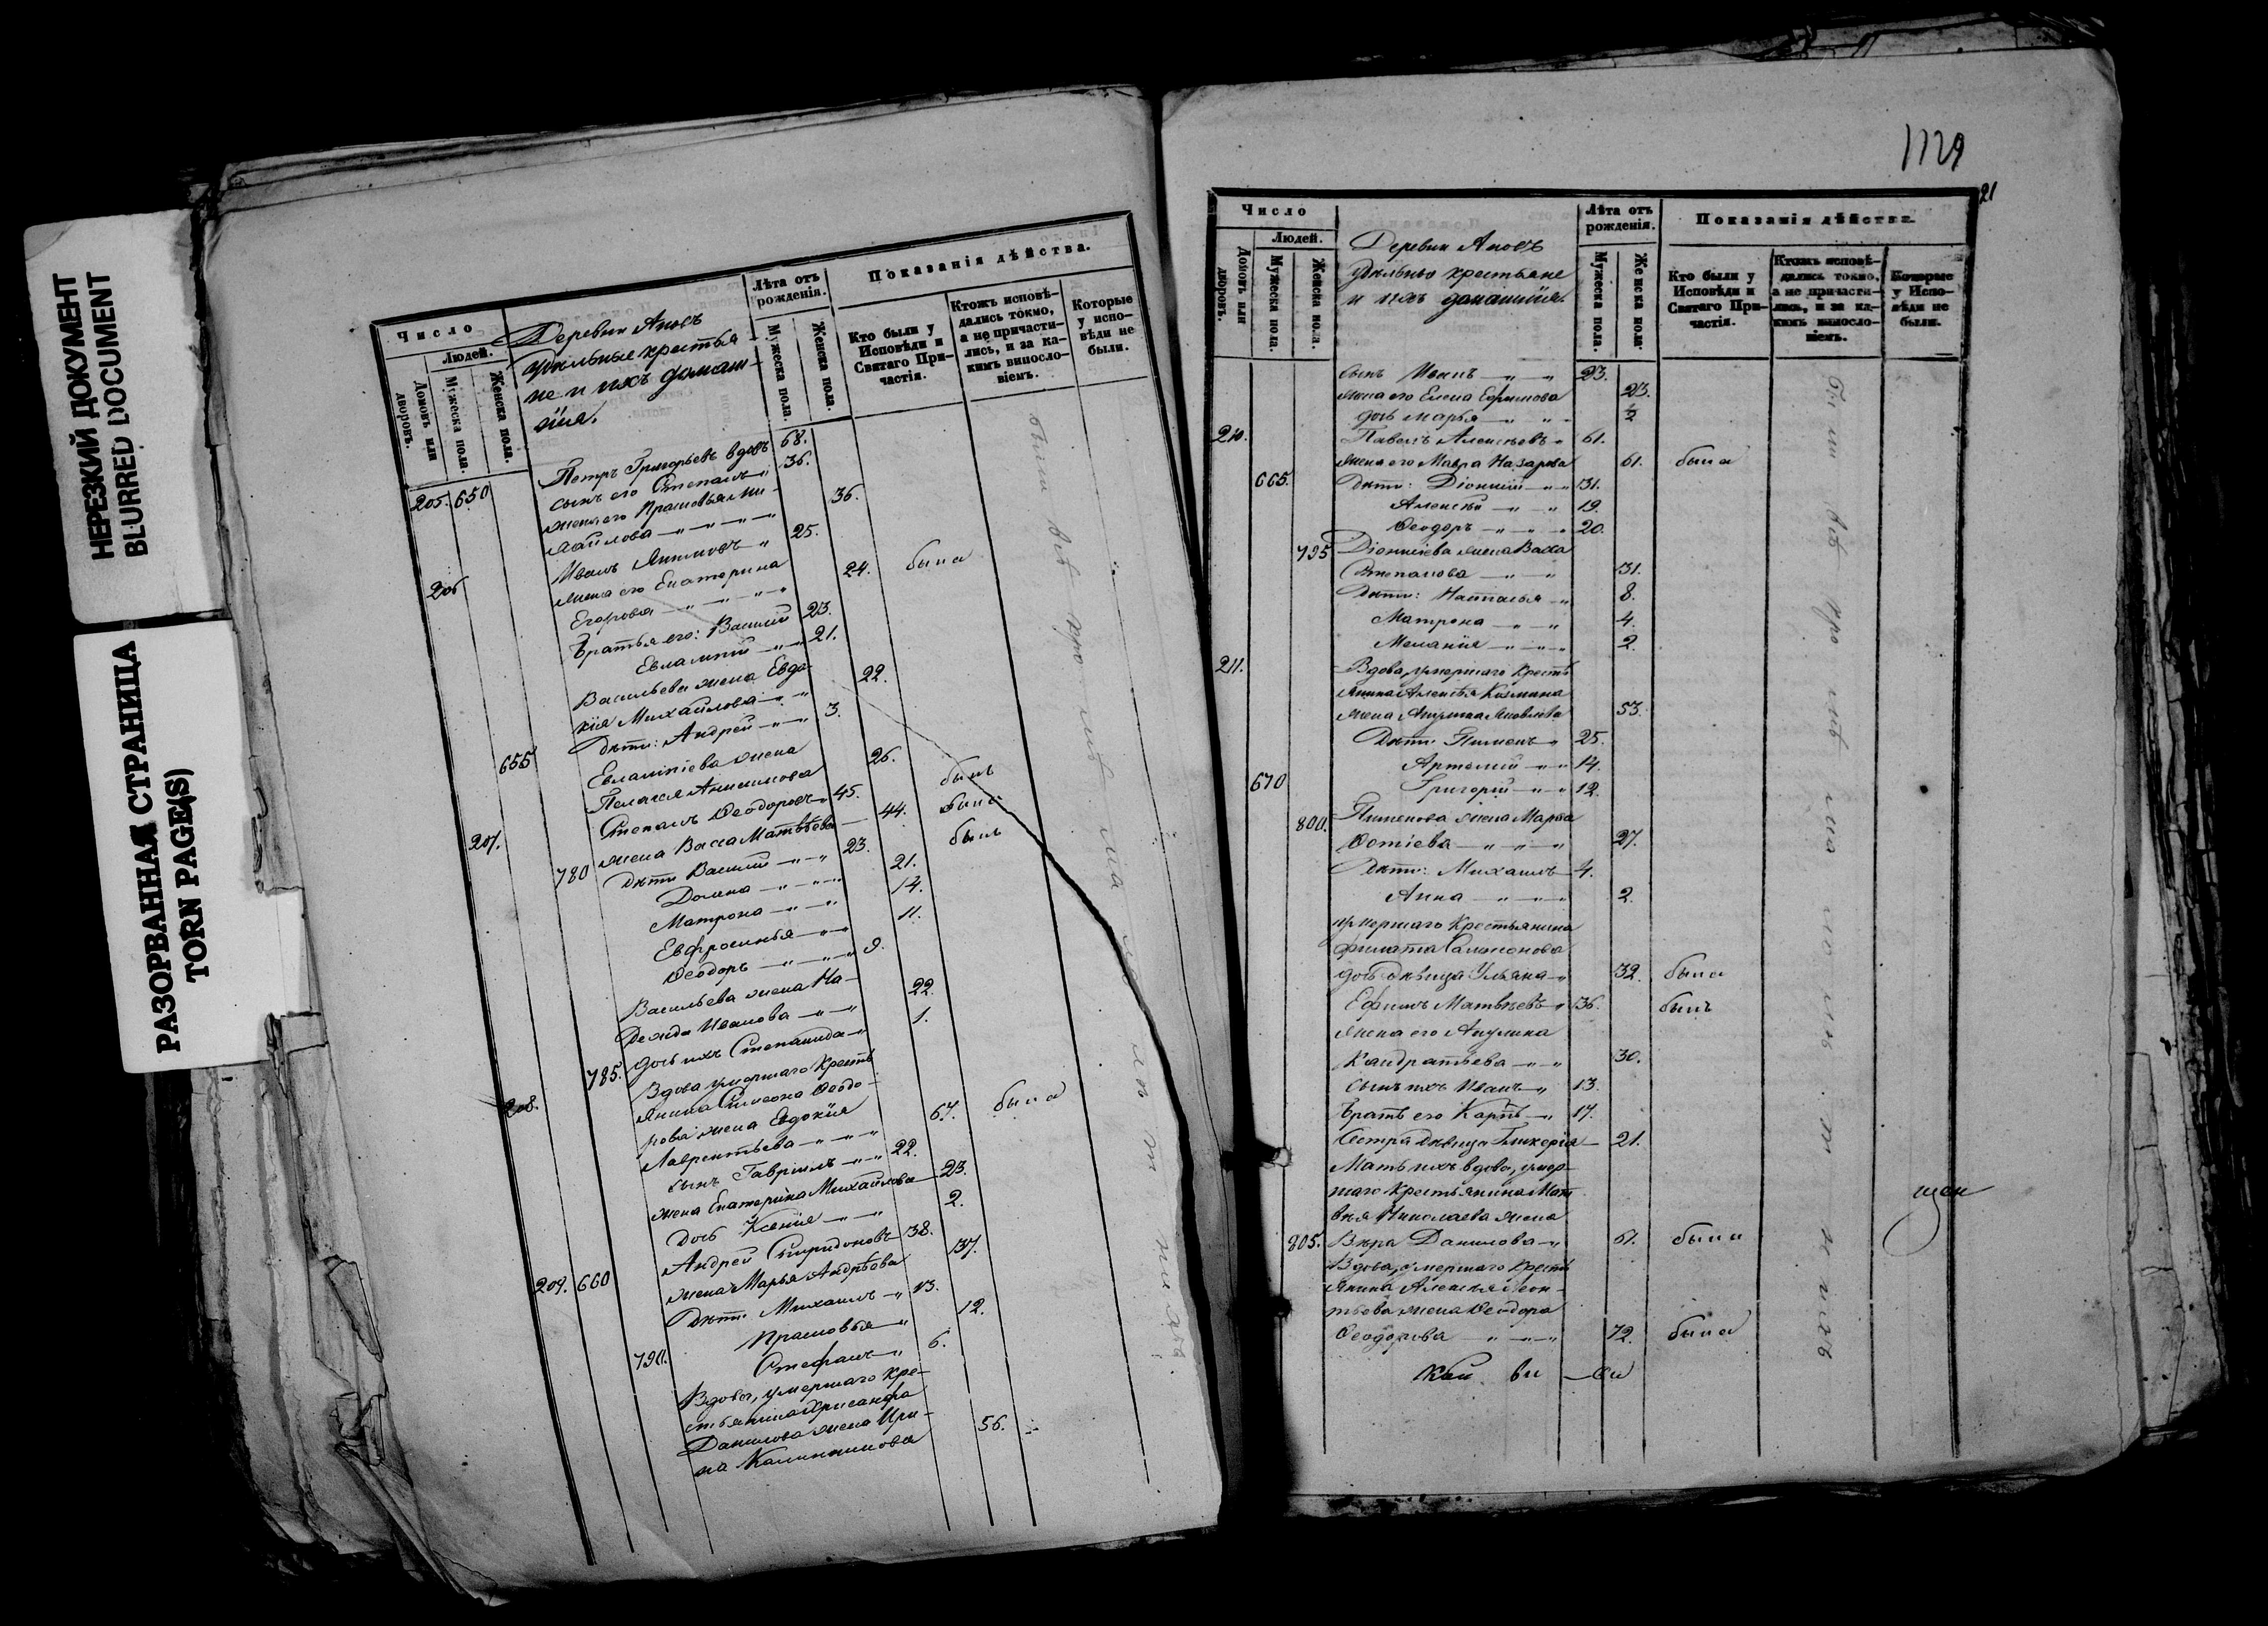 НЕРЕЗКИЙ ДОКУМЕНТ
BLURRED DOCUMENT
РАЗОРВАННАЯ СТРАНИЦА
TORN PAGE(S)
Число
Людей.
Домовъ или дворовъ.
Мужеска пола.
Женска пола.
Деревни
удѣльные крестья-
не и ихъ домаш-
нія.
Лѣта отъ рожденія.
Мужеска пола.
Женска пола.
Показанія дѣйства.
Кто были у Исповѣди и Святаго При-частія.
Ктожъ исповѣ-дались токмо, а не причасти-лись, и за ка-кимъ виносло-віемъ.
Которые у испо-вѣди не были.
205. 650 Петръ Григорьевъ вдовъ 68.
сынъ его Степанъ 36.
жена его Прасковья Ми-
хайлова 36.
206 Иванъ Акимовъ 25.
жена его Екатерина
Егорова 24. была
Братья его: Василій 23.
Евлампій 21.
Васильева жена Евдо-
кія Михайлова 22.
655 дѣти: Андрей 3.
Евлампіева жена
Пелагея Анисимова 26.
207. Степанъ Ѳеодоровъ 45. былъ
780 жена Васса Матвѣева 44. была
дѣти Василій 23. былъ
Домна 21.
Матрона 14.
Евфросинья 11.
Ѳеодоръ 9.
Васильева жена На-
дежда Иванова 22.
785. дочь ихъ Степанида 1.
208. Вдова умершаго кресть
янина Симеона Ѳеодо-
рова жена Евдокія
Лаврентьева 67. была
сынъ Гавріилъ 22.
жена Екатерина Михайлова 23.
дочь Ксенія 2.
209. 660 Андрей Спиридоновъ 38.
жена Марья Андрѣева 37.
дѣти Михаилъ 13.
790. Прасковья 12.
Стефанъ 6.
Вдова, умершаго кре-
стьянина Хрисанфа
Данилова жена Ири-
на Калинникова 56.
1129
21
Число
Людей.
Домовъ или дворовъ.
Мужеска пола.
Женска пола.
Деревни
удѣльно крестьяне
и ихъ домашнія.
Лѣта отъ рожденія.
Мужеска пола.
Женска пола.
Показанія дѣйства.
Кто были у Исповѣди и Святаго При-частія.
Ктожъ исповѣ-дались токмо, а не причасти-лись, и за ка-кимъ виносло-віемъ.
Которые у Испо-вѣди не были.
сынъ Иванъ 23.
жена его Елена Ефимова 23.
дочь Марья 2
210. Павелъ Алексѣевъ 61.
жена его Мавра Назарова 61. была
665. дѣти: Діонисій 31.
Алексѣй 19.
Ѳеодоръ 20.
795 Діонисіева жена Васса
Степанова 31.
дѣти: Наталья 8.
Матрона 4.
Меланія 2.
211. Вдова, умершаго кресть
янина Алексѣя Козмина
жена Акулина Яковлева 53.
дѣти: Пименъ 25.
Артемій 14.
670 Григорій 12.
800. Пименова жена Марѳа
Фотіева 27.
дѣти: Михаилъ 4.
Анна 2.
умершаго крестьянина
Филата Самсонова
дочь дѣвица Ульяна 32. была
Ефимъ Матвѣевъ 36. былъ
жена его Акулина
Кандратьева 30.
сынъ ихъ Иванъ 13.
братъ его Карпъ 17.
сестра дѣвица Гликерія 21.
Мать ихъ вдова, умер-
шаго крестьянина Мат
вѣя Николаева жена
805. Вѣра Данилова 61. была
Вдова, умершаго кресть
янина Алексѣя Леон-
тьева жена Ѳеодора
Ѳеодорова 72. была